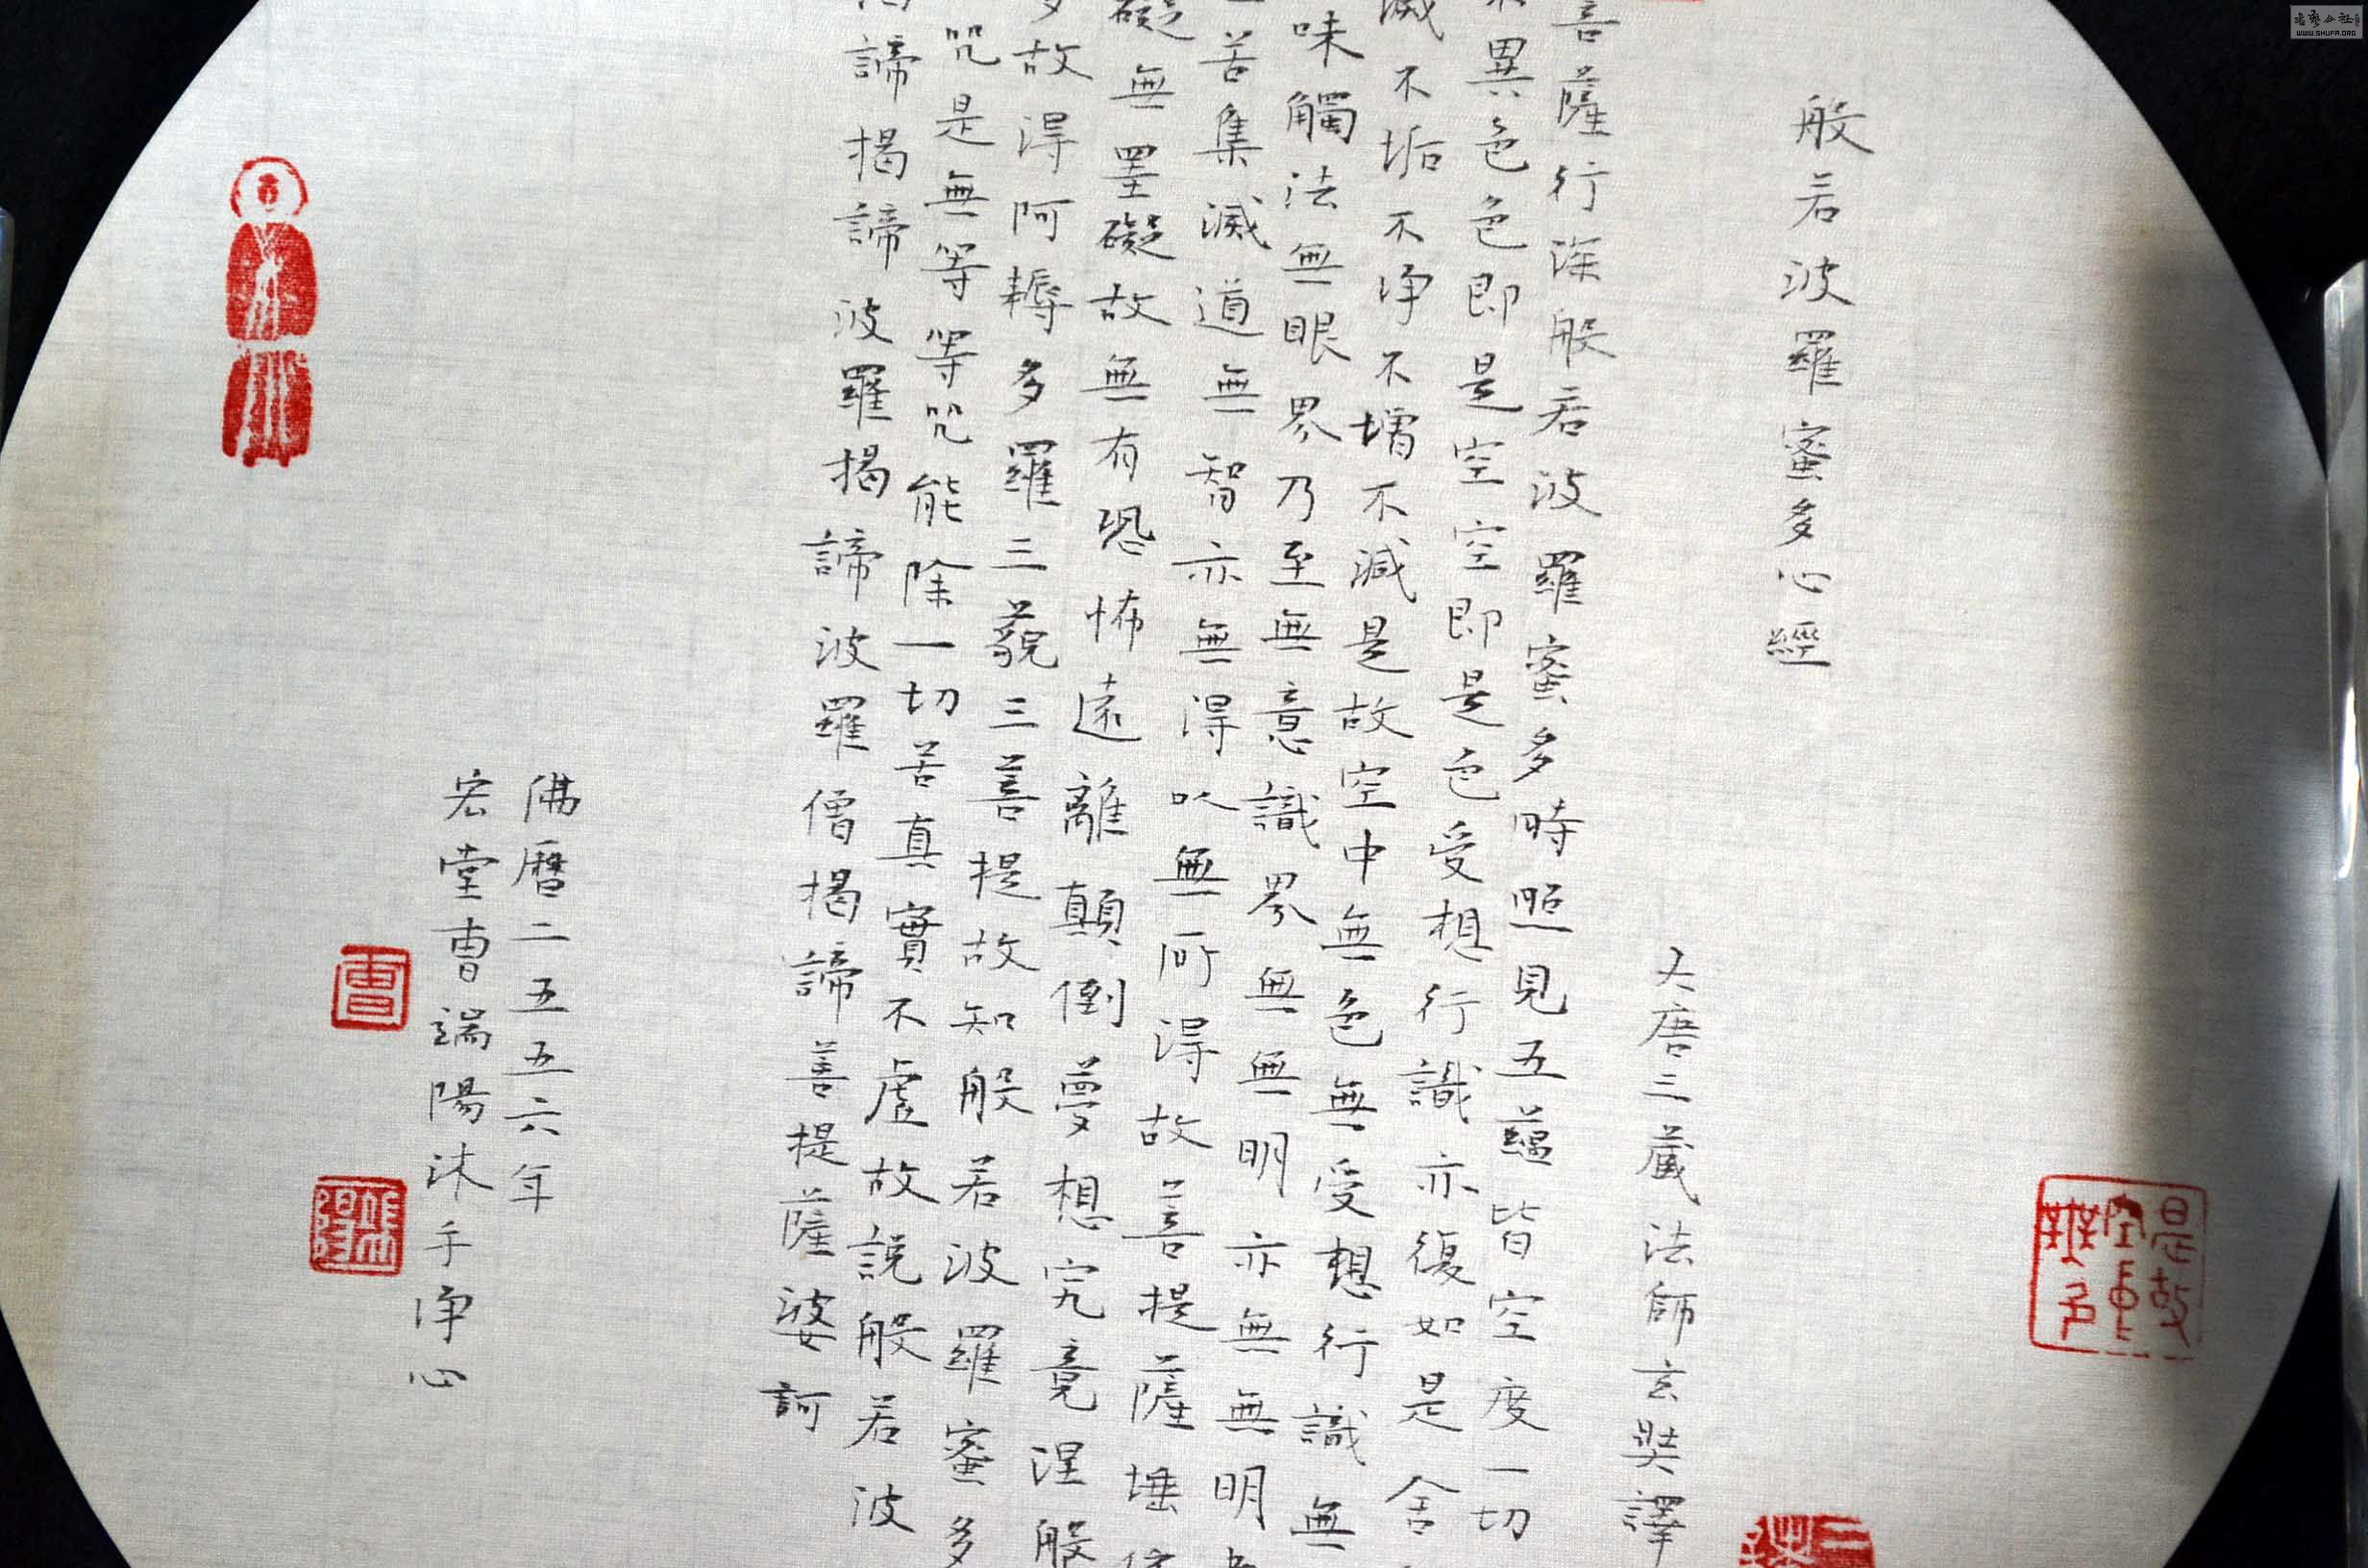 般若波羅蜜多心經
大唐三藏法師玄奘譯
菩薩行深般若波羅蜜多時照見五蘊皆空度一切
異色色即是空空即是色受想行識亦復如是舍
滅不垢不净不增不減是故空中無色無受想行識無
味觸法無眼界乃至無意識界無無明亦無無明
苦集滅道無智亦無得以無所得故菩提薩埵
礙無罣礙故無有恐怖遠離顛倒夢想究竟涅般
多故得阿耨多羅三藐三菩提故知般若波羅蜜多
咒是無等等咒能除一切苦真實不虛故説般若波
諦揭諦波羅揭諦波羅僧揭諦菩提薩婆訶
佛曆二五五六年
宏堂曹端陽沐手净心
曹
端陽
是故
空中
無色
WWW.SHUFA.ORG